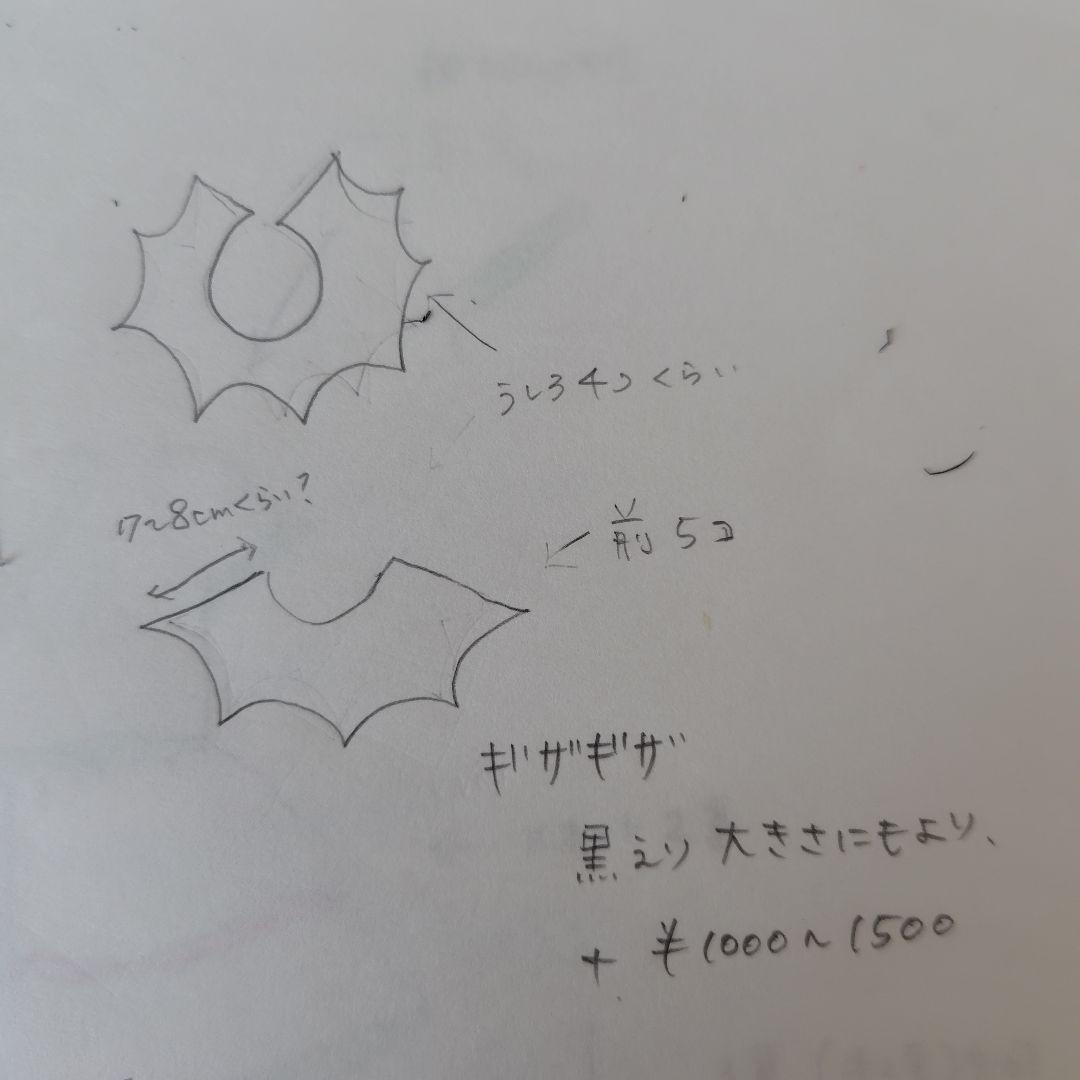 うしろ4つくらい
7~8cmくらい?
前5コ
ギザギザ
黒えり 大きさにもより、
+ ¥1000~1500